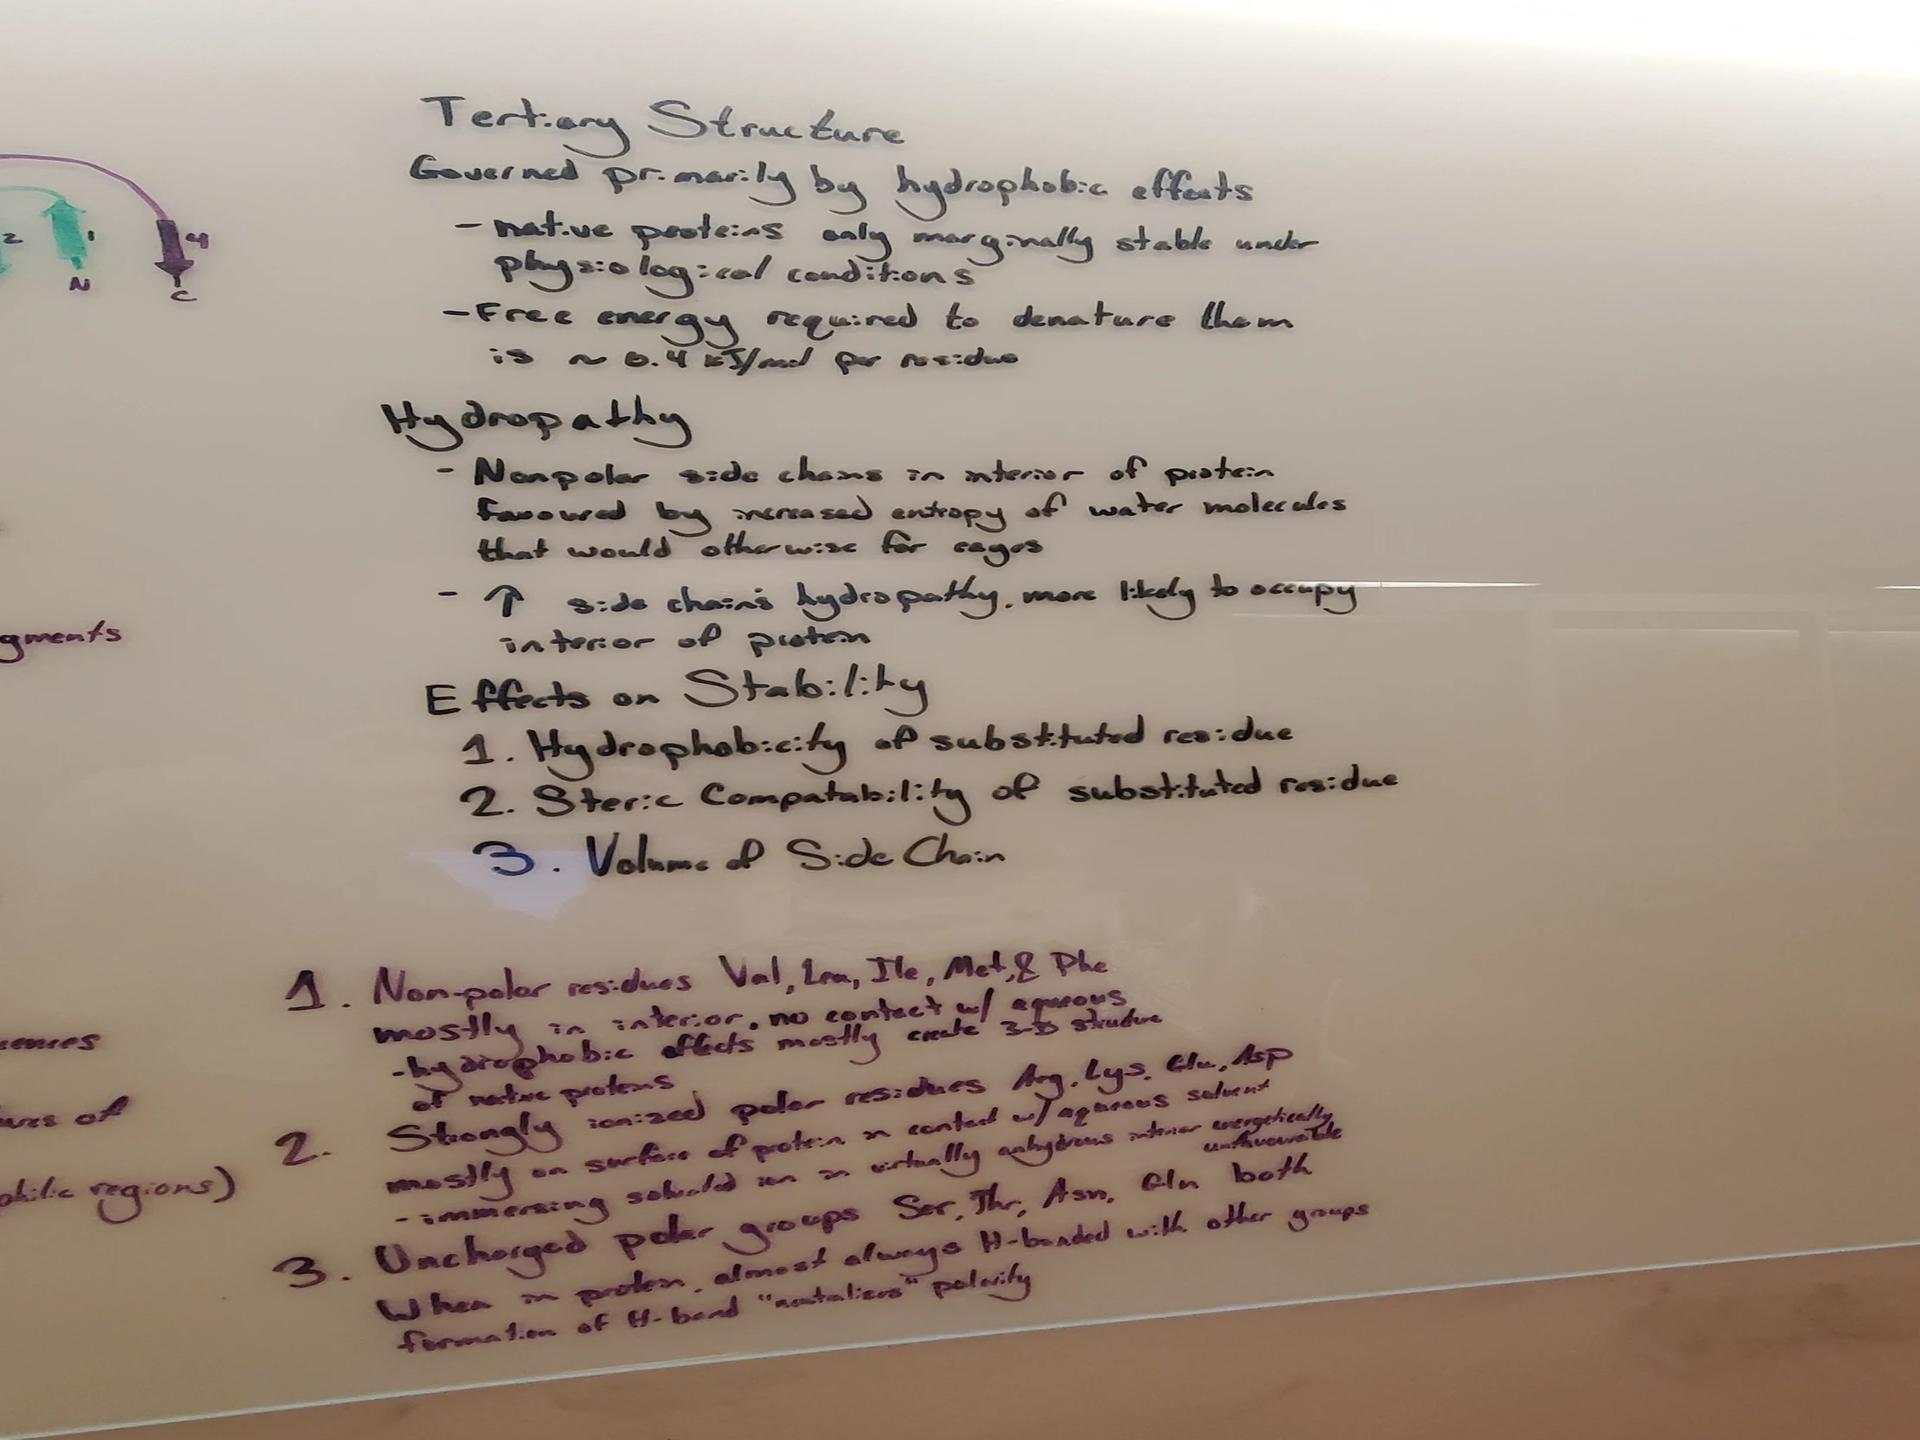 2
1
4
N
C
gments
Tertiary Structure
Governed primarily by hydrophobic effects
- native proteins only marginally stable under
physiological conditions
- Free energy required to denature them
is ~ 0.4 kJ/mol per residue
Hydropathy
- Nonpolar side chains in interior of protein
favoured by increased entropy of water molecules
that would otherwise for cages
- ↑ side chain's hydropathy, more likely to occupy
interior of protein
Effects on Stability
1. Hydrophobicity of substituted residue
2. Steric Compatability of substituted residue
3. Volume of Side Chain
1. Non-polar residues Val, Leu, Ile, Met, & Phe
mostly in interior, no contact w/ aqueous
- hydrophobic effects mostly create 3-D structure
of native proteins
2. Strongly ionized polar residues Arg, Lys, Glu, Asp
mostly on surface of protein in contact w/ aqueous solvent
- immersing solvated ion in virtually anhydrous interior energetically
unfavourable
3. Uncharged polar groups Ser, Thr, Asn, Gln both
When in protein, almost always H-bonded with other groups
formation of H-bond "neutaliers" polarity
of
philic regions)